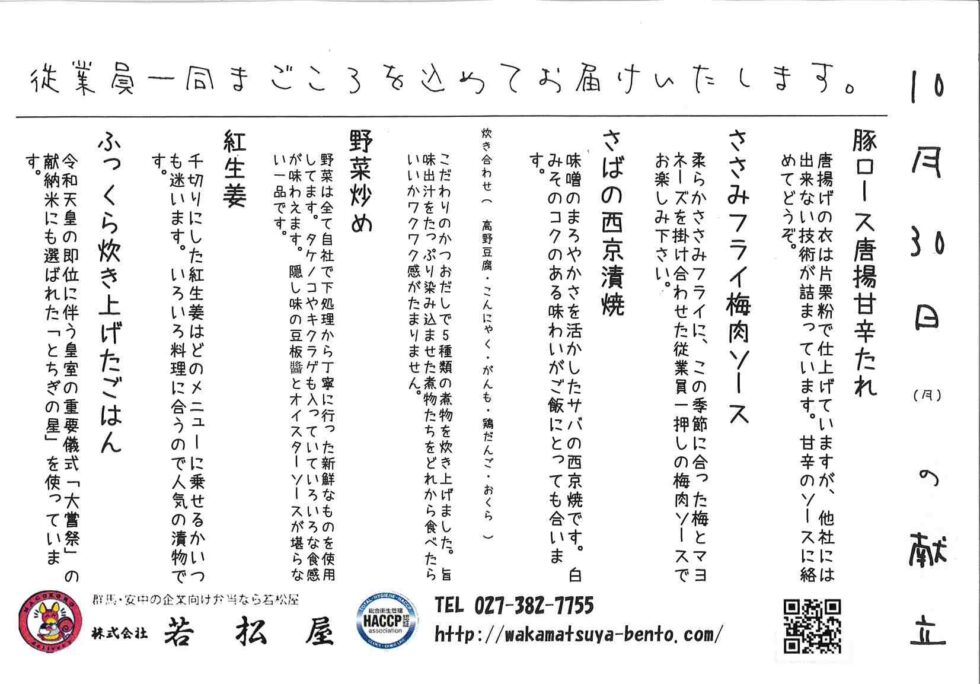 従業員一同まごころを込めてお届けいたします。
10月30日(月)の献立
豚ロース唐揚甘辛たれ
唐揚げの衣は片栗粉で仕上げていますが、他社には
出来ない技術が詰まっています。甘辛のソースに絡
めてどうぞ。
ささみフライ梅肉ソース
柔らかささみフライに、この季節に合った梅とマヨ
ネーズを掛け合わせた従業員一押しの梅肉ソースで
お楽しみ下さい。
さばの西京漬焼
味噌のまろやかさを活かしたサバの西京焼です。白
みそのコクのある味わいがご飯にとっても合いま
す。
炊き合わせ(高野豆腐・こんにゃく・がんも・鶏だんご・おくら)
こだわりのかつおだしで5種類の煮物を炊き上げました。旨
味出汁をたっぷり染み込ませた煮物たちをどれから食べたら
いいかワクワク感がたまりません。
野菜炒め
野菜は全て自社で下処理から丁寧に行った新鮮なものを使用
してます。タケノコやキクラゲも入っていていろいろな食感
が味わえます。隠し味の豆板醬とオイスターソースが堪らな
い一品です。
紅生姜
千切りにした紅生姜はどのメニューに乗せるかいつ
も迷います。いろいろ料理に合うので人気の漬物で
す。
ふっくら炊き上げたごはん
令和天皇の即位に伴う皇室の重要儀式「大嘗祭」の
献納米にも選ばれた「とちぎの星」を使っていま
す。
MAGOKORO
delivery
群馬・安中の企業向けお弁当なら若松屋
株式会社 若松屋
総合衛生管理
HACCP
認証
association
TEL 027-382-7755
http://wakamatsuya-bento.com/